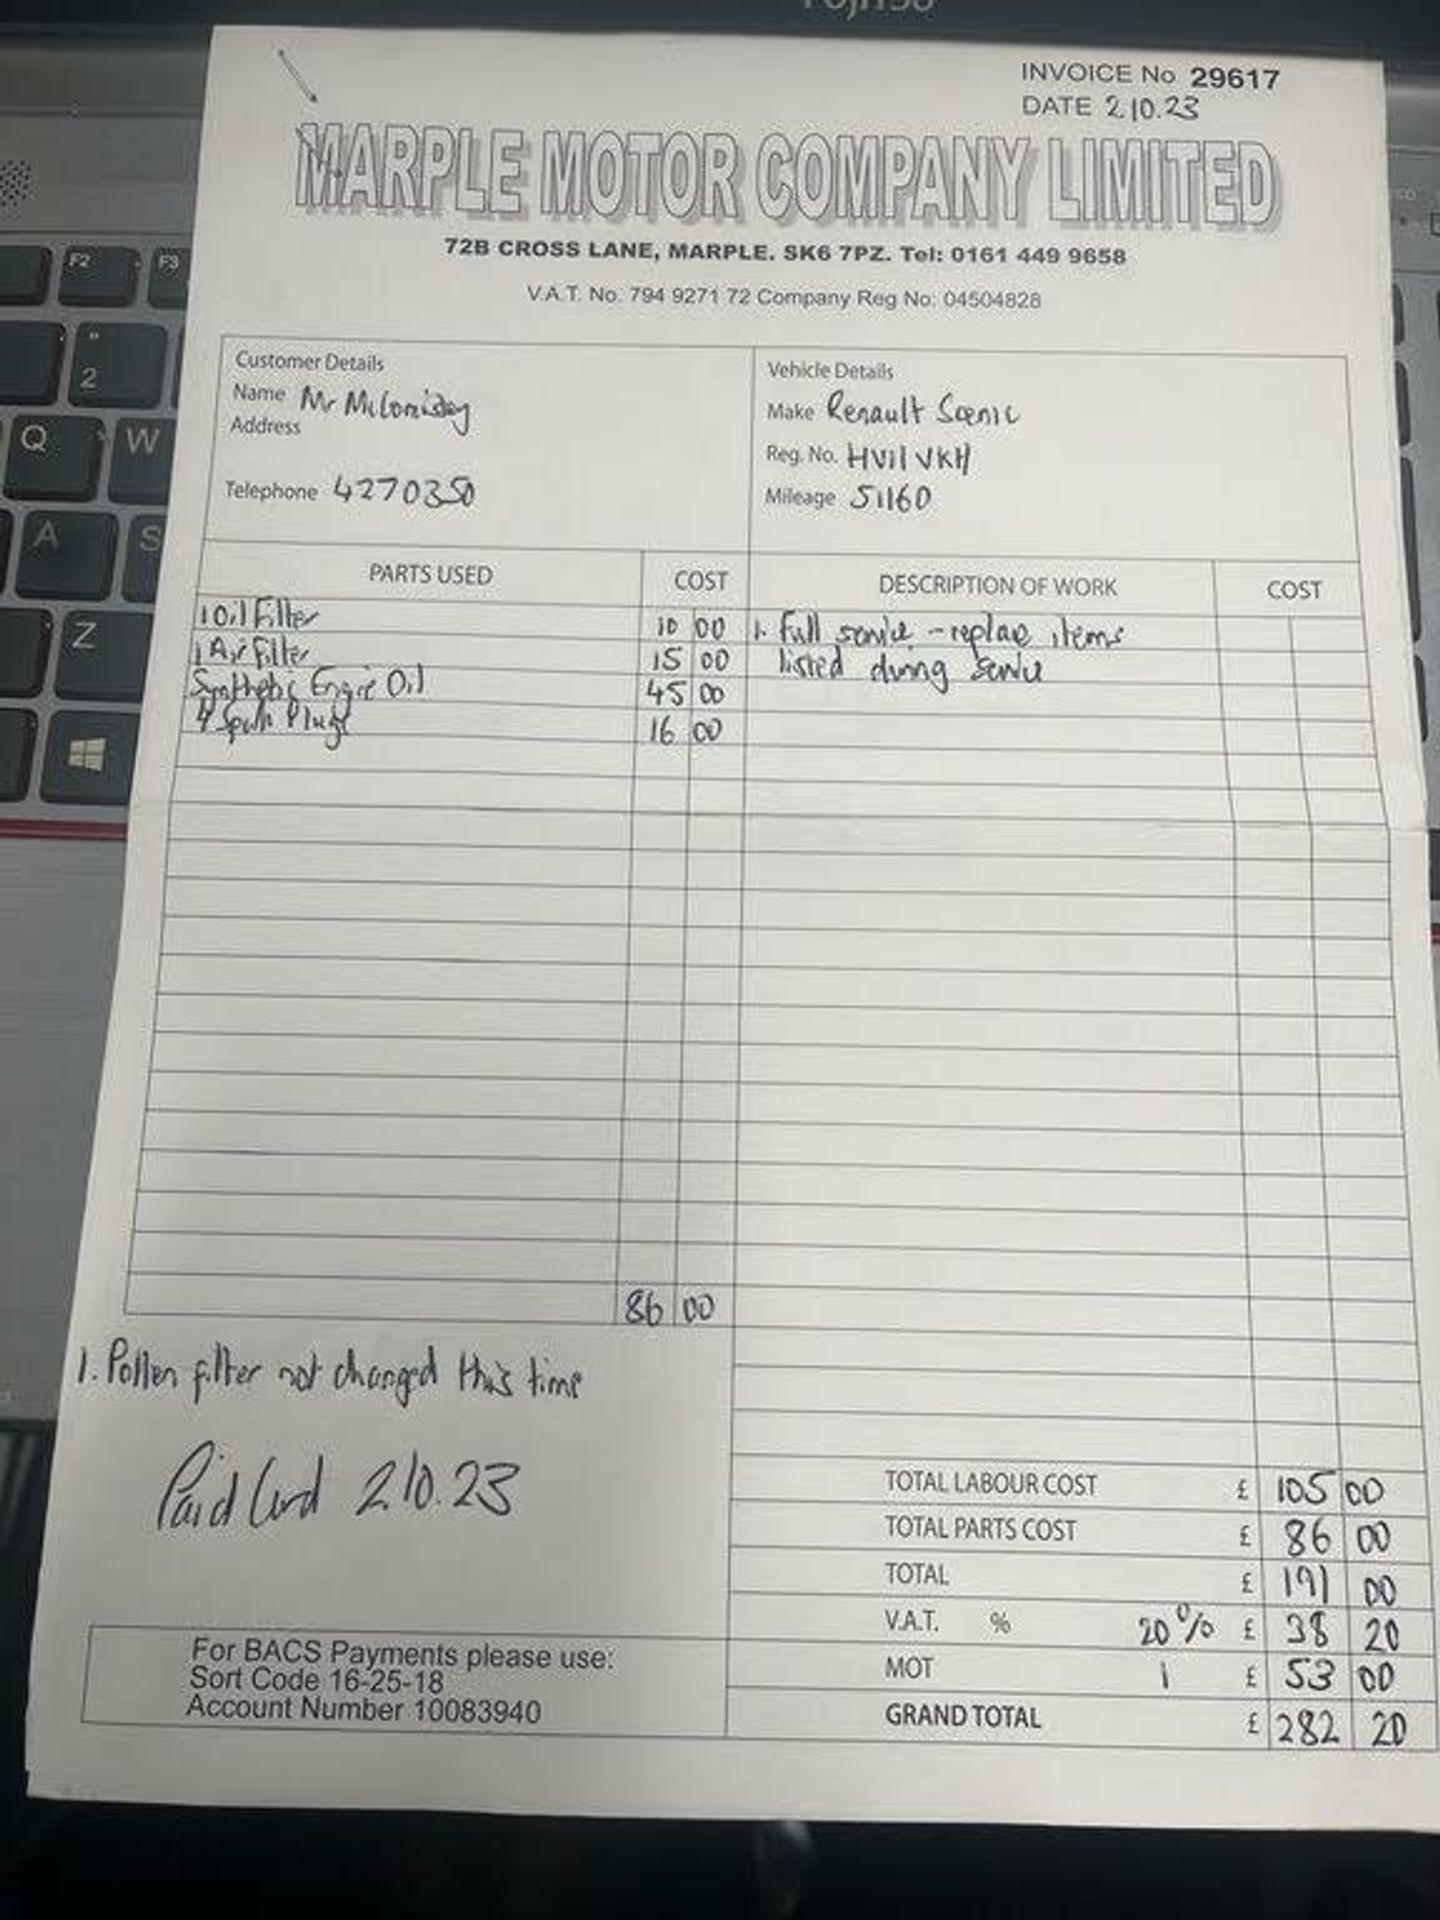 FUJITSU
INVOICE No 29617
DATE 2.10.23
MARPLE MOTOR COMPANY LIMITED
72B CROSS LANE, MARPLE. SK6 7PZ. Tel: 0161 449 9658
V.A.T. No. 794 9271 72 Company Reg No: 04504828
Customer Details
Name Mr
Address
Telephone 4270350
Vehicle Details
Make Renault Scenic
Reg. No. HV11 VKH
Mileage 51160
PARTS USED COST DESCRIPTION OF WORK COST
1 Oil Filter 10 00 1. Full service - replace items
1 Air Filter 15 00 listed during service
Synthetic Engine Oil 45 00
4 Spark Plugs 16 00
86 00
1. Pollen filter not changed this time
Paid Card 2.10.23
TOTAL LABOUR COST £ 105 00
TOTAL PARTS COST £ 86 00
TOTAL £ 191 00
V.A.T. % 20% £ 38 20
MOT 1 £ 53 00
GRAND TOTAL £ 282 20
For BACS Payments please use:
Sort Code 16-25-18
Account Number 10083940
F2
F3
"
2
Q
W
A
S
Z